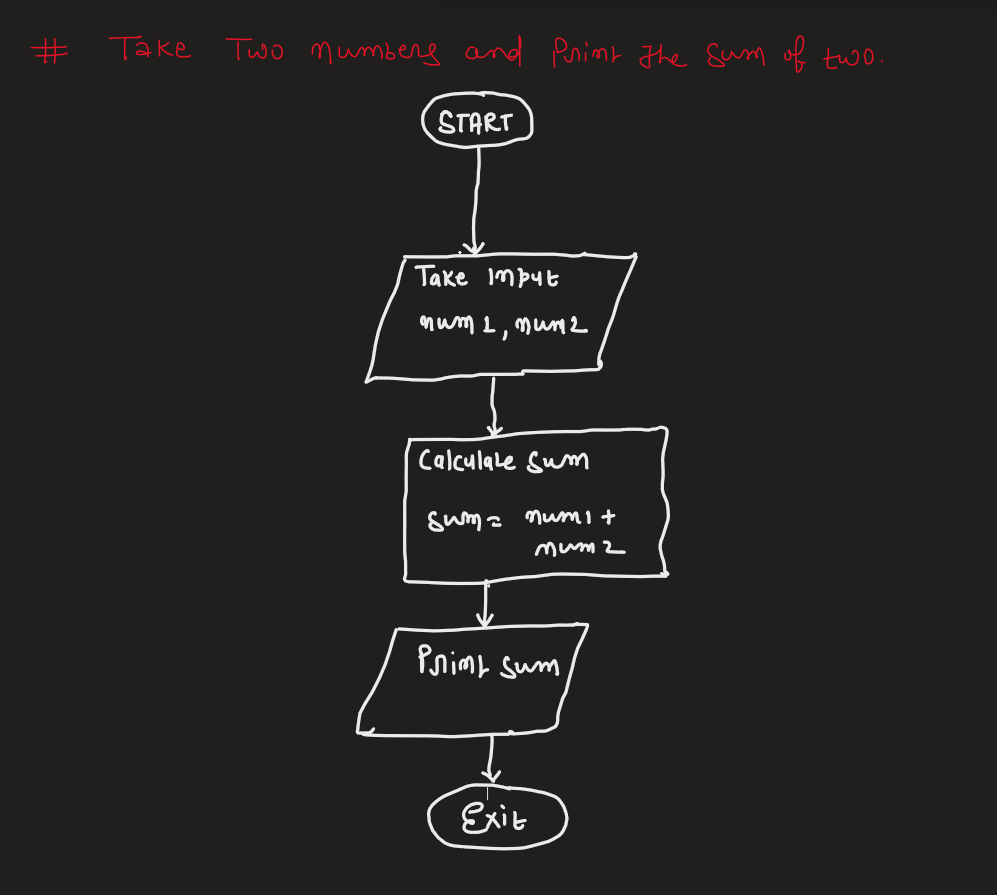 # Take Two numbers and Print the sum of two.
START
Take Input
num1, num2
Calculate sum
sum = num1 +
num2
Print sum
Exit